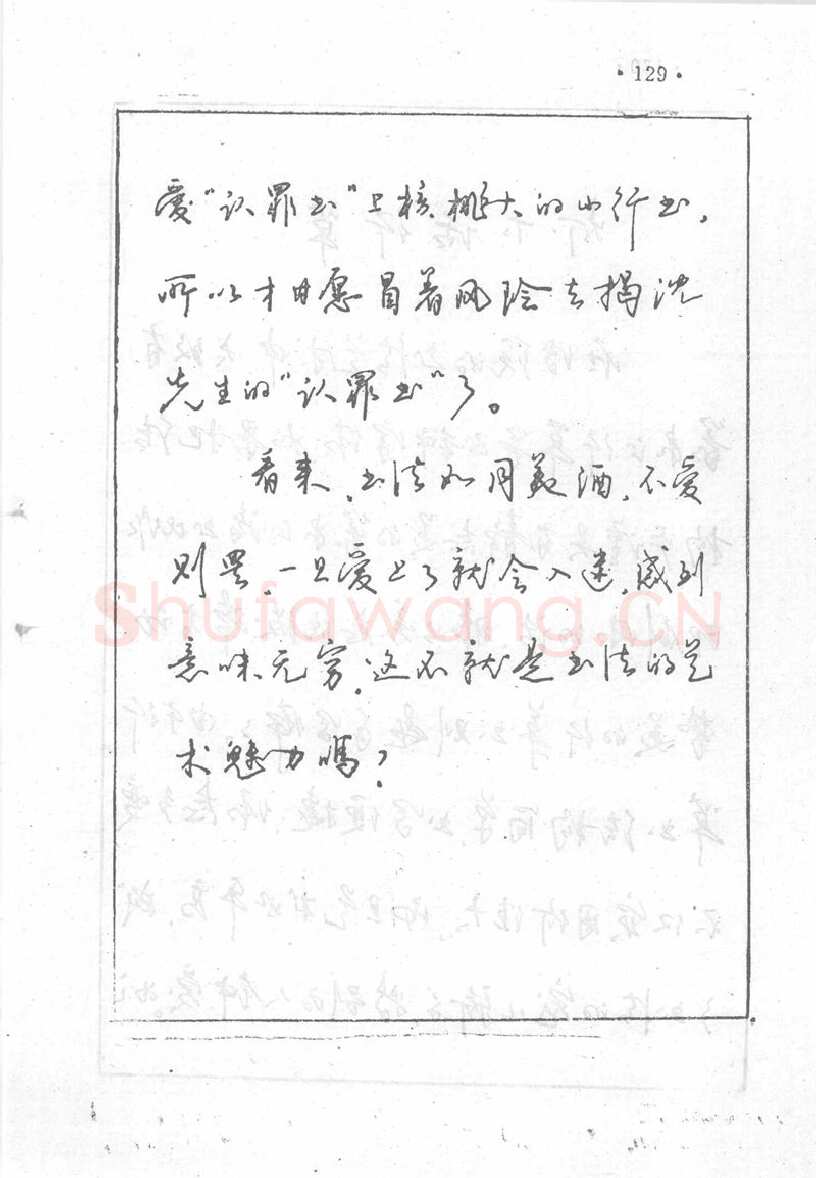 ·129·
爱“认罪书”上核桃大的小行书,
所以才甘愿冒着风险去揭沈
先生的“认罪书”了。
看来,书法如同美酒,不爱
则罢,一旦爱上了就会入迷,感到
意味无穷。这不就是书法的艺
术魅力吗?
Shufawang.CN